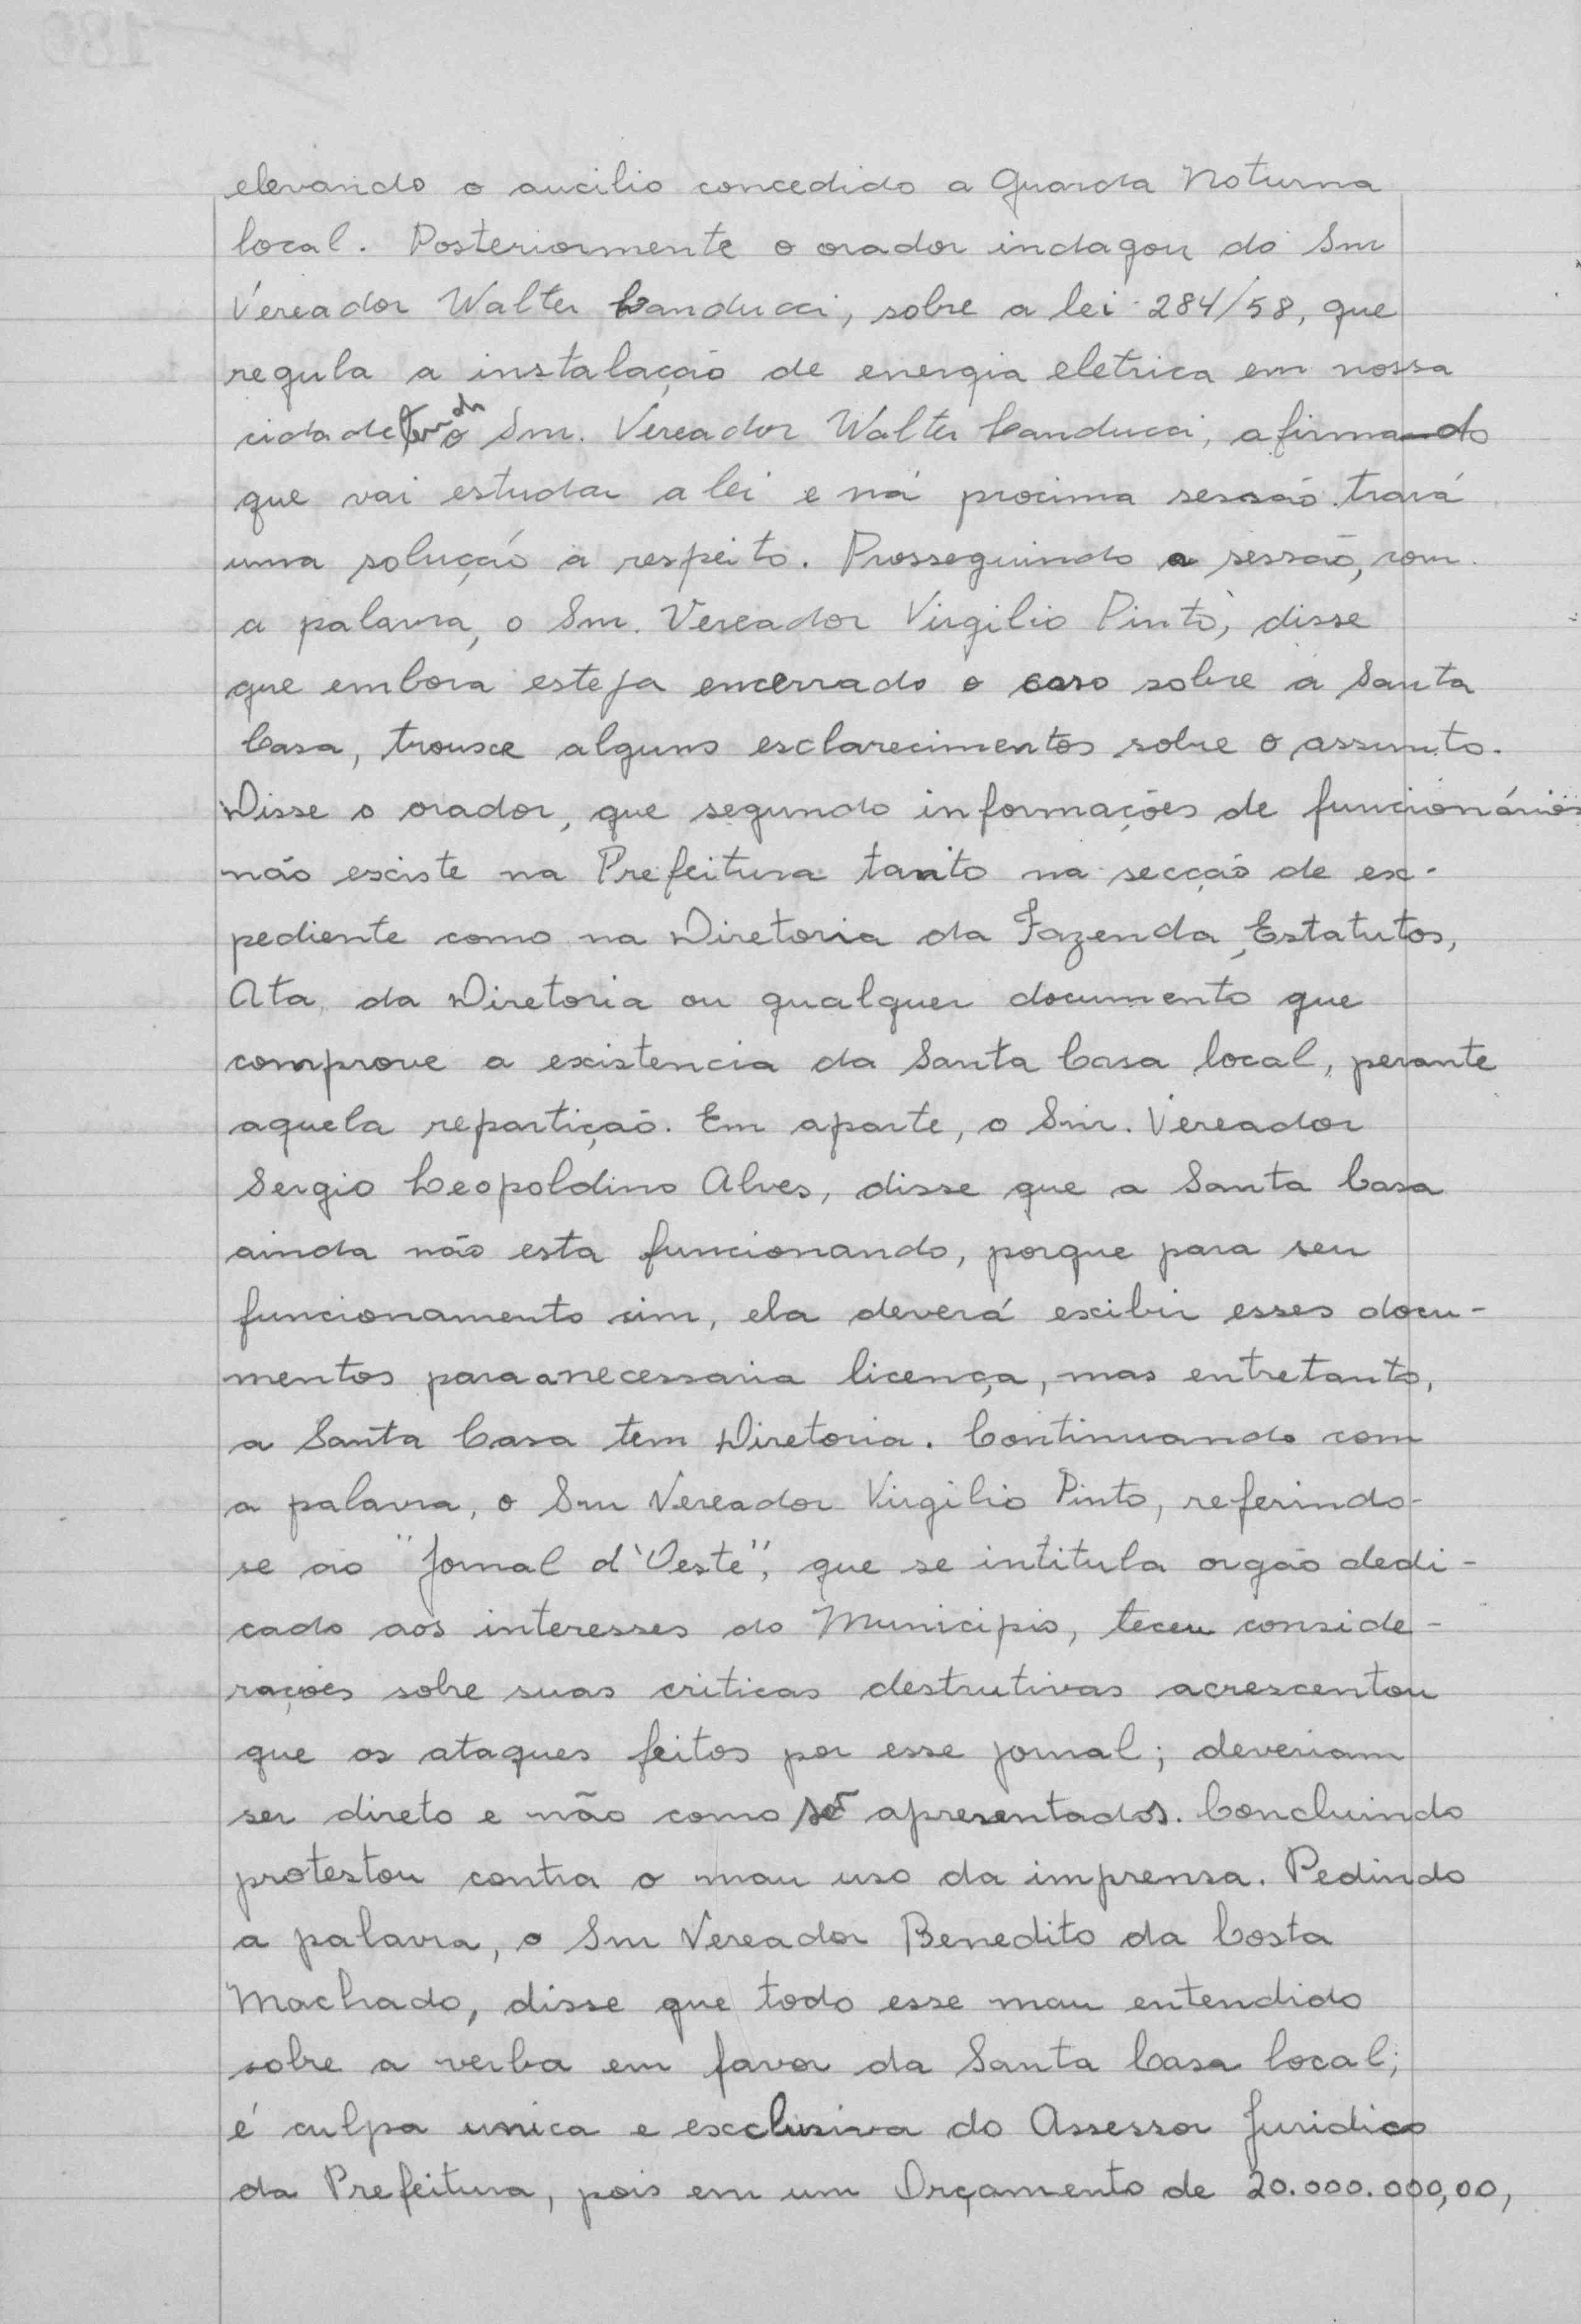 elevando o aucilio concedido a Guarda Noturna
local. Posteriormente o orador indagou do Snr
Vereador Walter Canducci, sobre a lei 284/58, que
regula a instalação de energia eletrica em nossa
cidade, tendo o Snr. Vereador Walter Canducci, afirmando
que vai estudar a lei e na procima sessão trará
uma solução a respeito. Prosseguindo a sessão, com
a palavra, o Snr. Vereador Virgilio Pinto, disse
que embora esteja encerrado o caso sobre a Santa
Casa, trouxe alguns esclarecimentos sobre o assunto.
Disse o orador, que segundo informações de funcionários
não existe na Prefeitura tanto na secção de ex-
pediente como na Diretoria da Fazenda, Estatutos,
Ata da Diretoria ou qualquer documento que
comprove a existencia da Santa Casa local, perante
aquela repartição. Em aparte, o Snr. Vereador
Sergio Leopoldino Alves, disse que a Santa Casa
ainda não esta funcionando, porque para seu
funcionamento sim, ela deverá exibir esses docu-
mentos para a necessaria licença, mas entretanto,
a Santa Casa tem Diretoria. Continuando com
a palavra, o Snr Vereador Virgilio Pinto, referindo-
se ao "Jornal d'Oeste", que se intitula orgão dedi-
cado aos interesses do Municipio, teceu conside-
rações sobre suas criticas destrutivas acrescentou
que os ataques feitos por esse jornal; deveriam
ser direto e não como apresentados. Concluindo
protestou contra o mau uso da imprensa. Pedindo
a palavra, o Snr Vereador Benedito da Costa
Machado, disse que todo esse mau entendido
sobre a verba em favor da Santa Casa local;
é culpa unica e exclusiva do Assessor Juridico
da Prefeitura, pois em um Orçamento de 20.000.000,00,